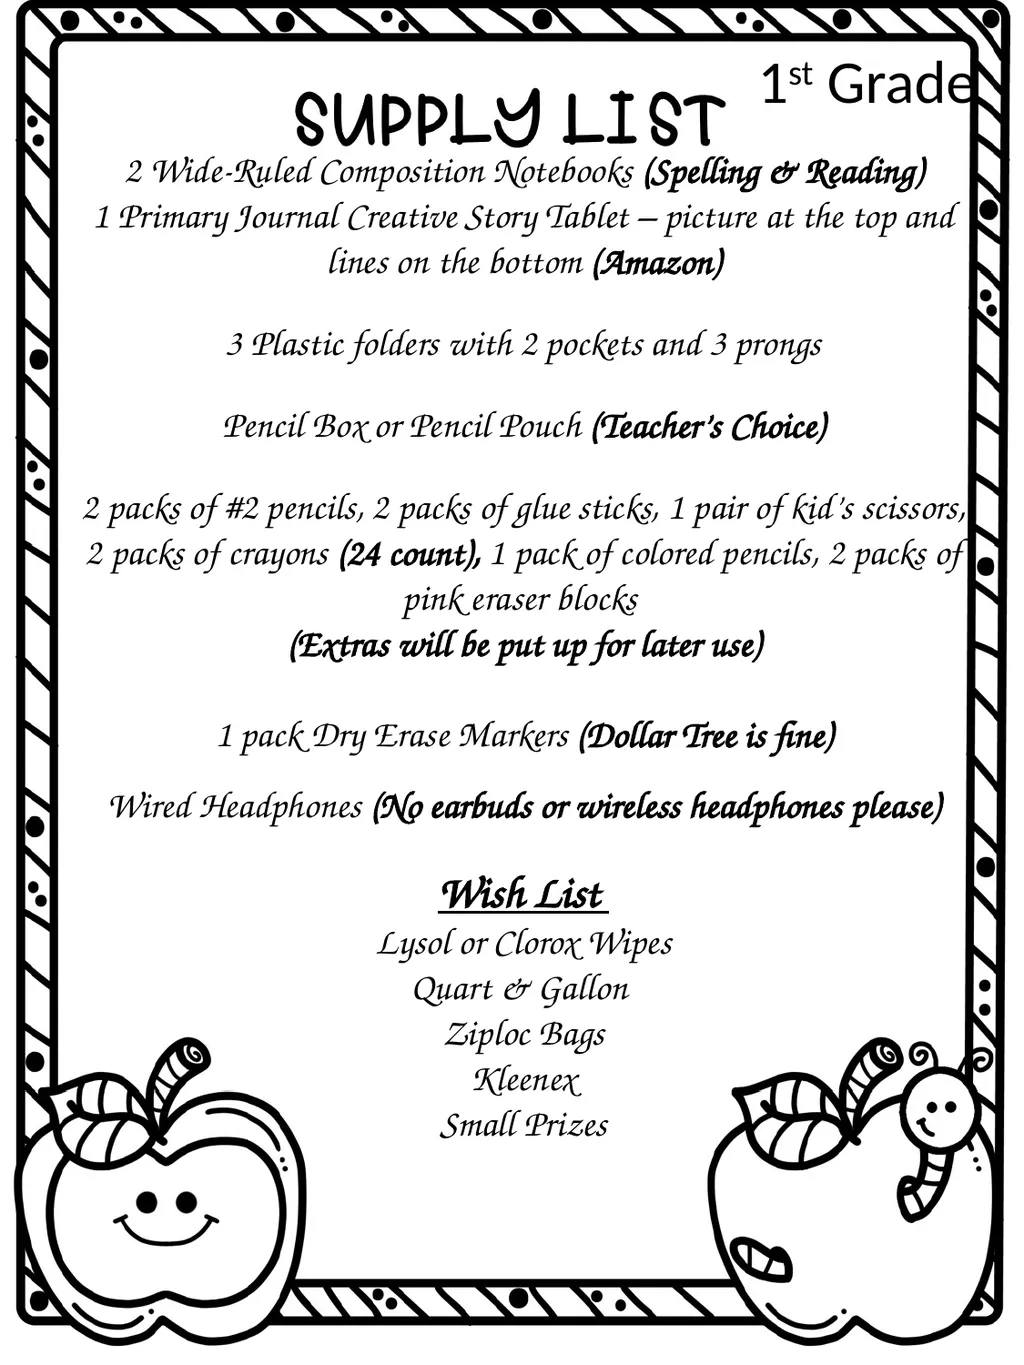 1st Grade
SUPPLY LIST
2 Wide-Ruled Composition Notebooks (Spelling & Reading)
1 Primary Journal Creative Story Tablet – picture at the top and
lines on the bottom (Amazon)
3 Plastic folders with 2 pockets and 3 prongs
Pencil Box or Pencil Pouch (Teacher's Choice)
2 packs of #2 pencils, 2 packs of glue sticks, 1 pair of kid's scissors,
2 packs of crayons (24 count), 1 pack of colored pencils, 2 packs of
pink eraser blocks
(Extras will be put up for later use)
1 pack Dry Erase Markers (Dollar Tree is fine)
Wired Headphones (No earbuds or wireless headphones please)
Wish List
Lysol or Clorox Wipes
Quart & Gallon
Ziploc Bags
Kleenex
Small Prizes